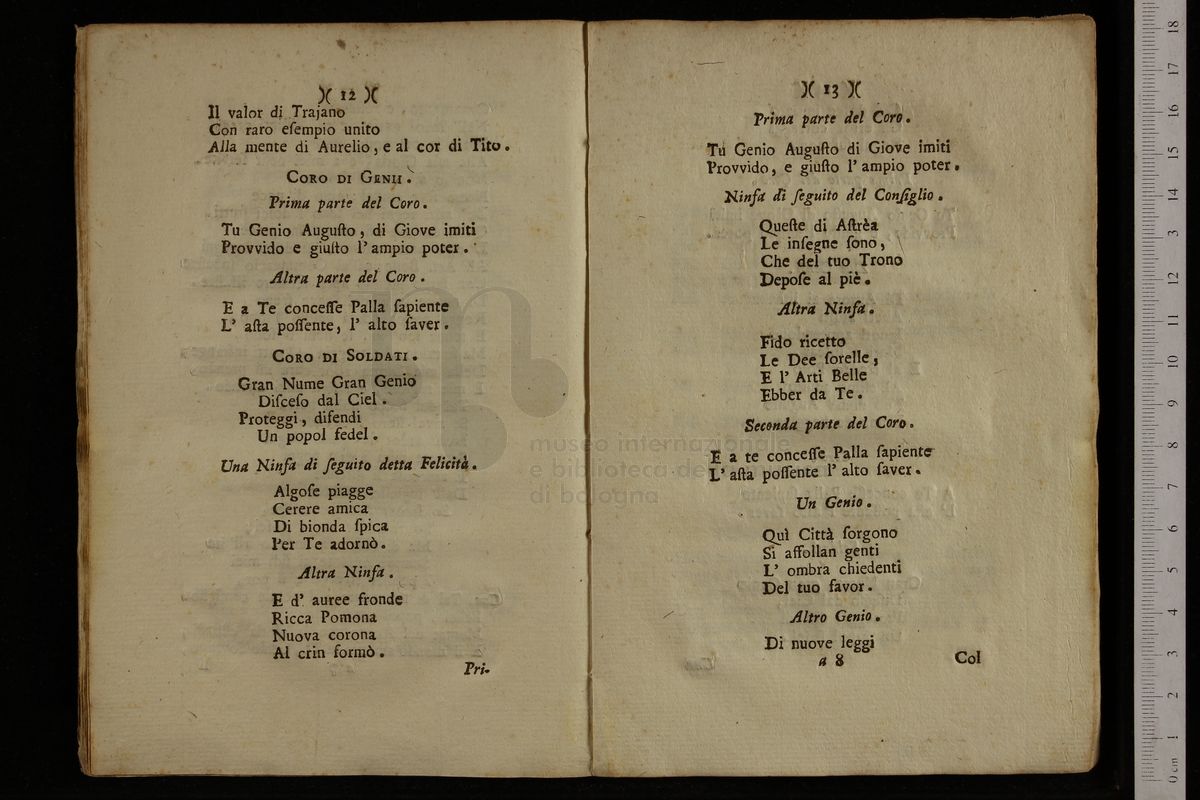 )( 12 )(
Il valor di Trajano
Con raro eſempio unito
Alla mente di Aurelio, e al cor di Tito.
CORO DI GENII.
Prima parte del Coro.
Tu Genio Auguſto, di Giove imiti
Provvido e giuſto l' ampio poter.
Altra parte del Coro.
E a Te conceſſe Palla ſapiente
L' aſta poſſente, l' alto ſaver.
CORO DI SOLDATI.
Gran Nume Gran Genio
Diſceſo dal Ciel.
Proteggi, difendi
Un popol fedel.
Una Ninfa di ſeguito detta Felicità.
Algoſe piagge
Cerere amica
Di bionda ſpica
Per Te adornò.
Altra Ninfa.
E d' auree fronde
Ricca Pomona
Nuova corona
Al crin formò.
Pri-
)( 13 )(
Prima parte del Coro.
Tu Genio Auguſto di Giove imiti
Provvido, e giuſto l' ampio poter.
Ninfa di ſeguito del Conſiglio.
Queſte di Aſtrèa
Le inſegne ſono,
Che del tuo Trono
Depoſe al piè.
Altra Ninfa.
Fido ricetto
Le Dee ſorelle,
E l' Arti Belle
Ebber da Te.
Seconda parte del Coro.
E a te conceſſe Palla ſapiente
L' aſta poſſente l' alto ſaver.
Un Genio.
Quì Città ſorgono
Si affollan genti
L' ombra chiedenti
Del tuo favor.
Altro Genio.
Di nuove leggi
a 8
Col
museo internazionale
e biblioteca de
di bologna
0 cm 1 2 3 4 5 6 7 8 9 10 11 12 13 14 15 16 17 18